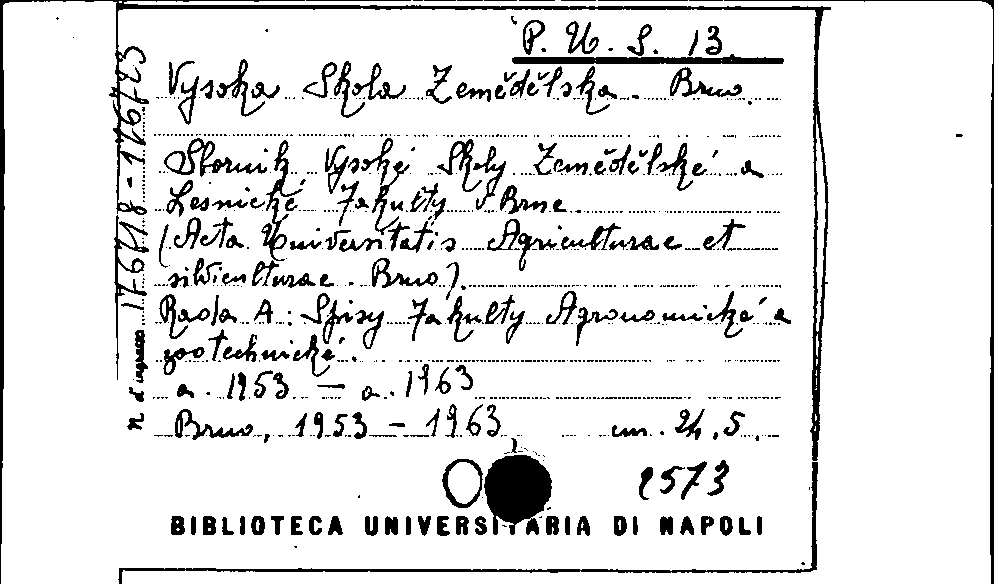 P. U. S. 13.
Vysoka Skola Zemědělska. Brno.
Sbornik Vysoké Skoly Zemědělské a
Lesnické Fakulty v Brne.
(Acta Universitatis Agriculturae et
silviculturae. Brno).
Rada A: Spisy Fakulty Agronomické a
zootechnické.
a. 1953 — a. 1963
Brno, 1953 - 1963 cm. 24,5.
2573
BIBLIOTECA UNIVERSITARIA DI NAPOLI
n. d'ingresso 176718-176723